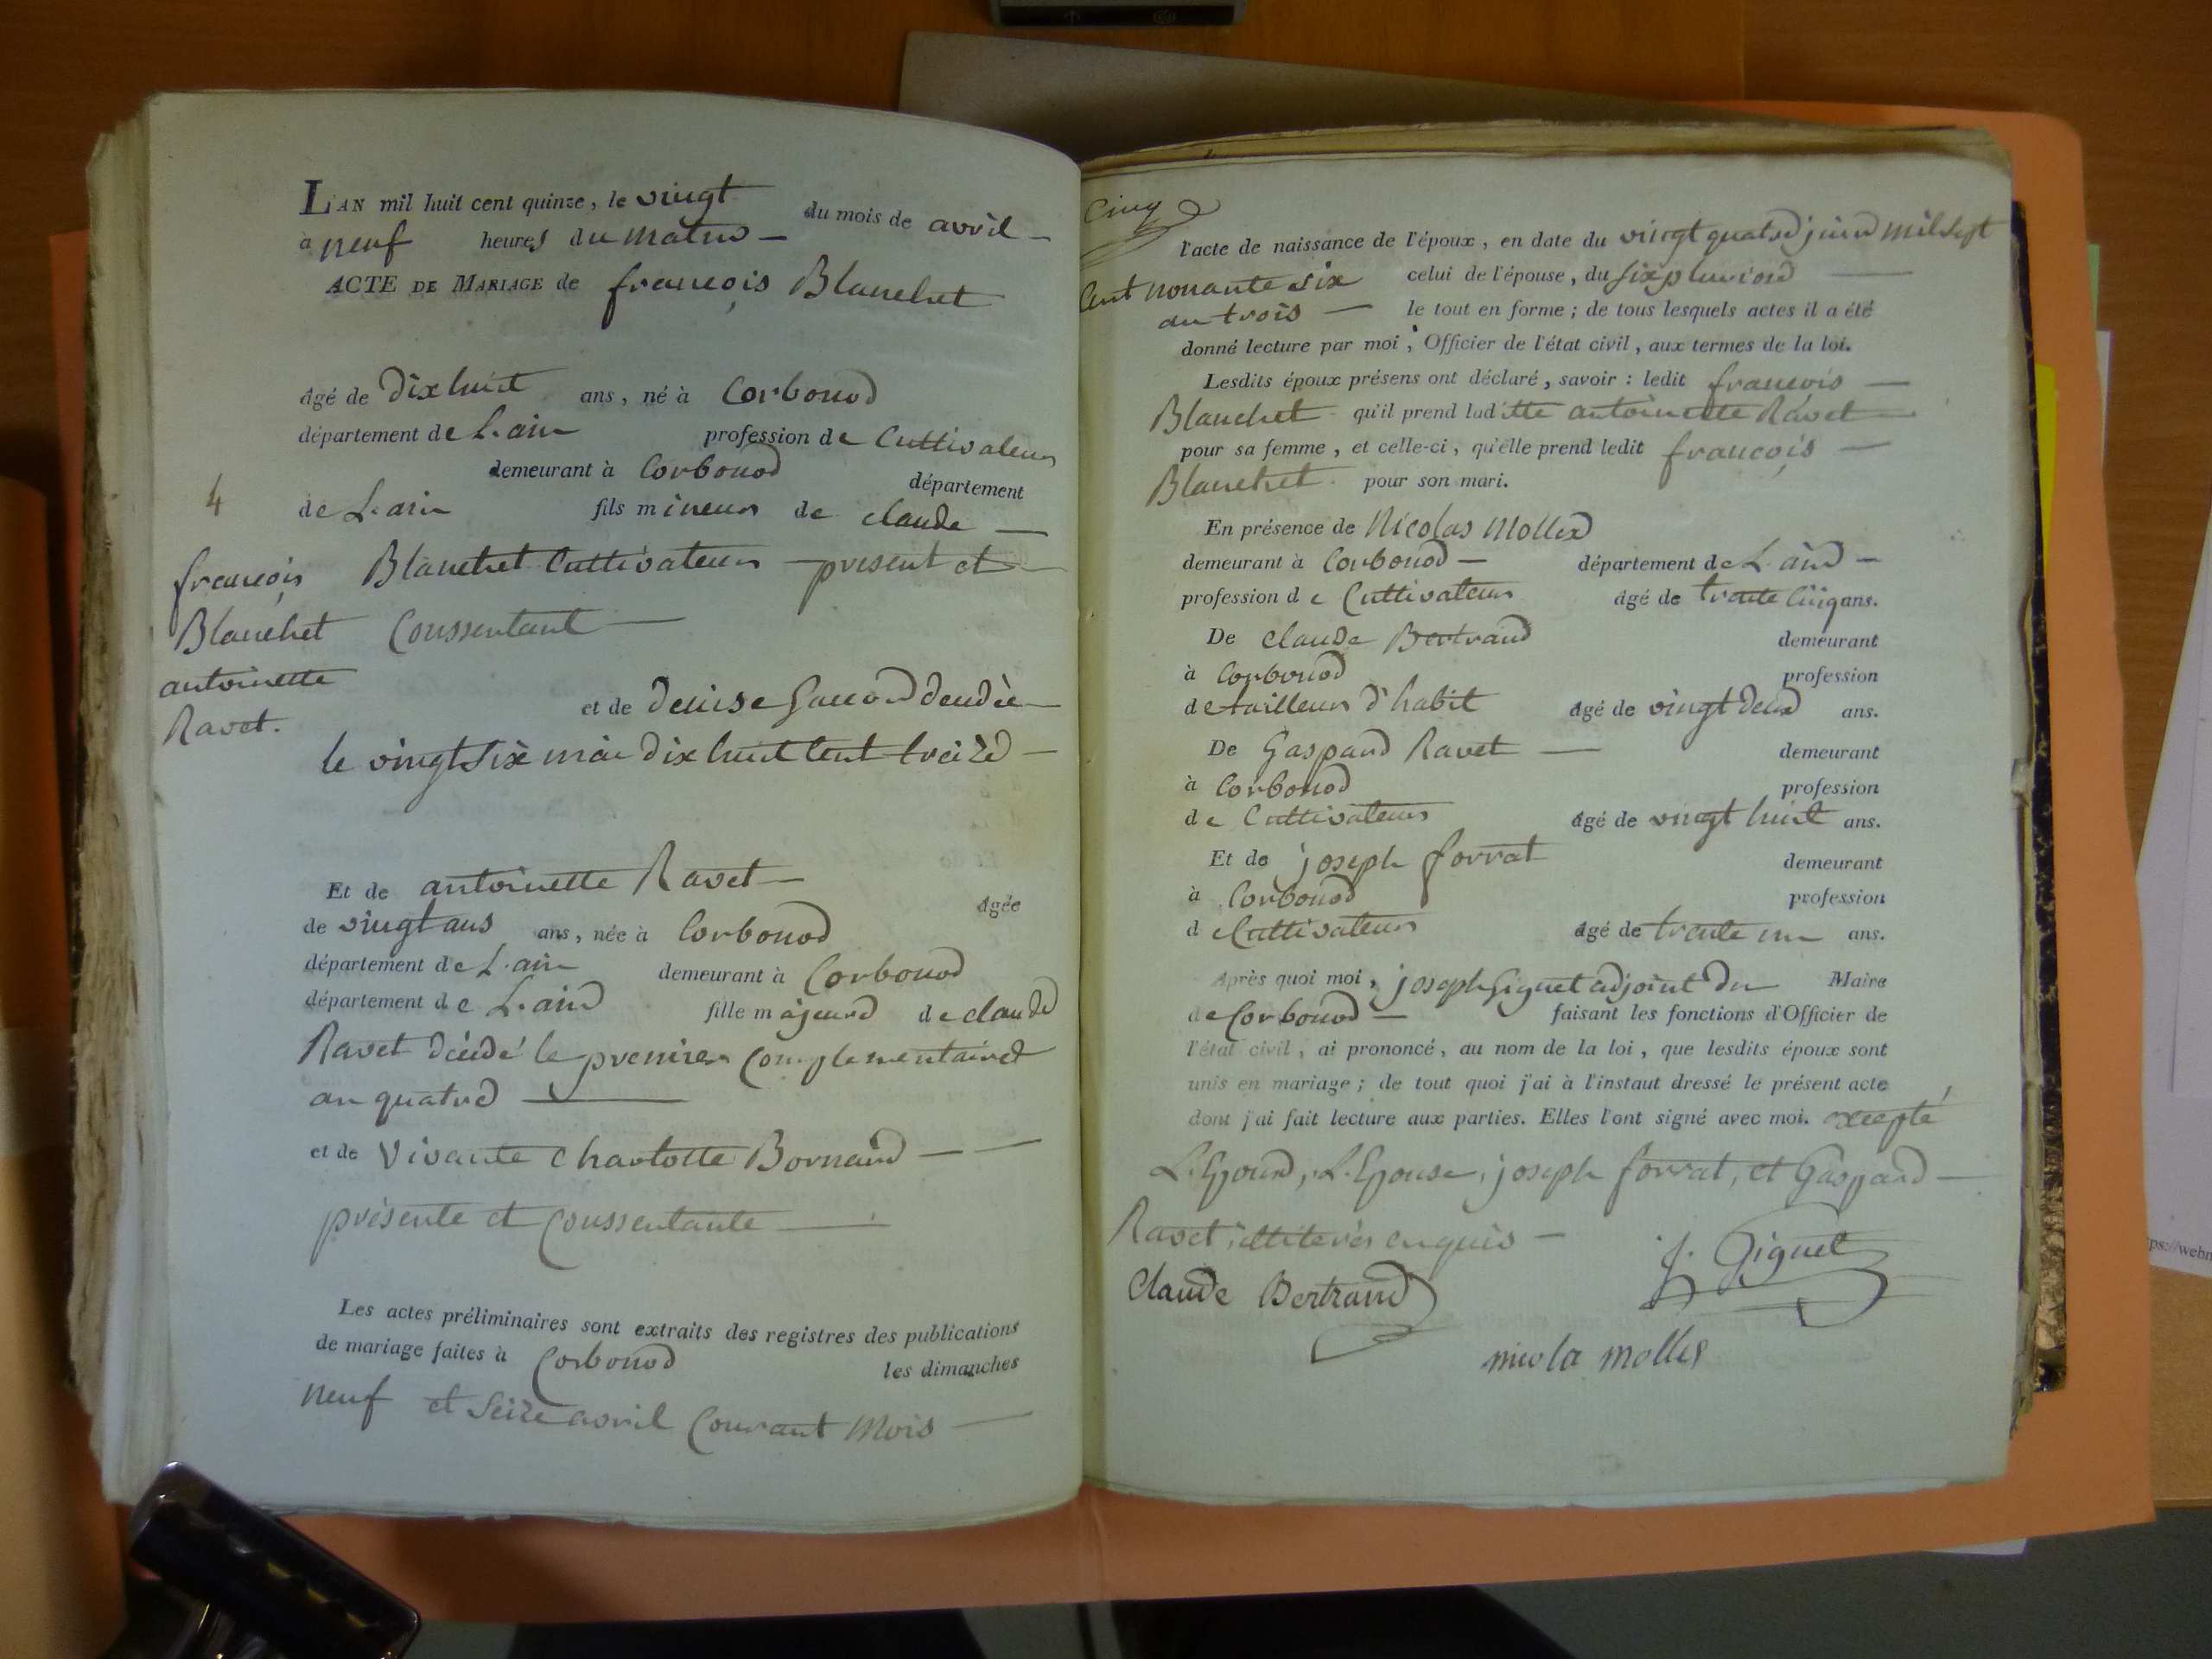 L'AN mil huit cent quinze, le vingt du mois de avril
à neuf heures du matin
ACTE DE MARIAGE de françois Blanchet
âgé de dix huit ans, né à Corbonod
département de L'ain profession de Cultivateur
demeurant à Corbonod département
4 de L'ain fils mineur de claude
françois Blanchet Cultivateur present et
Blanchet Conssentant
antoinette
Ravet.
et de denise
le vingt six mai dix huit cent treize
Et de antoinette Ravet âgée
de vingt ans ans, née à Corbonod
département de L'ain demeurant à Corbonod
département de L'ain fille majeure de claude
Ravet décédé le premier Complementaire
an quatre
et de vivante charlotte Bornard
présente et Conssentante
Les actes préliminaires sont extraits des registres des publications
de mariage faites à Corbonod les dimanches
neuf et seize avril Courant mois
Cinq
l'acte de naissance de l'époux, en date du vingt quatre juin mil sept
Cent nonante six celui de l'épouse, du six pluviose
an trois le tout en forme; de tous lesquels actes il a été
donné lecture par moi, Officier de l'état civil, aux termes de la loi.
Lesdits époux présens ont déclaré, savoir: ledit françois
Blanchet qu'il prend laditte antoinette Ravet
pour sa femme, et celle-ci, qu'elle prend ledit françois
Blanchet pour son mari.
En présence de Nicolas Mollex
demeurant à Corbonod département de L'ain
profession de Cultivateur âgé de trente cinq ans.
De claude Bertrand demeurant
à Corbonod profession
de tailleur d'habit âgé de vingt deux ans.
De Gaspard Ravet demeurant
à Corbonod profession
de Cultivateur âgé de vingt huit ans.
Et de joseph forrat demeurant
à Corbonod profession
de Cultivateur âgé de trente un ans.
Après quoi moi, joseph Giguet adjoint du Maire
de Corbonod faisant les fonctions d'Officier de
l'état civil, ai prononcé, au nom de la loi, que lesdits époux sont
unis en mariage; de tout quoi j'ai à l'instaut dressé le présent acte
dont j'ai fait lecture aux parties. Elles l'ont signé avec moi. excepté
L'Epoux, L'Epouse, joseph forrat, et Gaspard
Ravet, illiterés enquis
J. Giguet
Claude Bertrand
nicola mollex